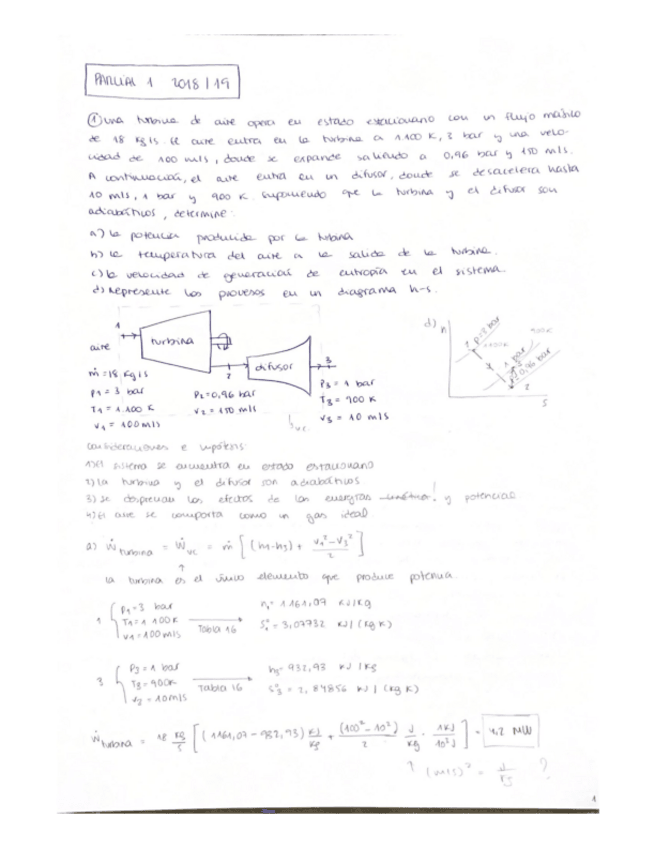 PARCIAL 1 2018/19
① Una turbina de aire opera en estado estacionario con un flujo másico
de 18 kg/s. El aire entra en la turbina a 1100 K, 3 bar y una velo-
cidad de 100 m/s, donde se expande saliendo a 0,96 bar y 150 m/s.
A continuación, el aire entra en un difusor, donde se desacelera hasta
10 m/s, 1 bar y 900 K. suponiendo que la turbina y el difusor son
adiabáticos, determine:
a) la potencia producida por la turbina
b) la temperatura del aire a la salida de la turbina.
c) la velocidad de generación de entropía en el sistema.
d) Represente los procesos en un diagrama h-s.
1
aire
turbina
2
difusor
3
ṁ = 18 kg/s
P1 = 3 bar
T1 = 1.100 K
V1 = 100 m/s
P2 = 0,96 bar
V2 = 150 m/s
P3 = 1 bar
T3 = 900 K
V3 = 10 m/s
d)
h
1
1100K
900K
1 bar
P2=0,96 bar
2
s
consideraciones e hipótesis
1) El sistema se encuentra en estado estacionario
2) la turbina y el difusor son adiabáticos
3) se desprecian los efectos de las energías cinética! y potencial
4) El aire se comporta como un gas ideal
a) Ẇturbina = Ẇvc = ṁ [ (h1-h3) + (V1² - V3²)/2 ]
la turbina es el único elemento que produce potencia.
1 { P1 = 3 bar
T1 = 1100K
V1 = 100 m/s
Tabla 16
h1 = 1161,07 kJ/kg
s1° = 3,07732 kJ/(kg K)
3 { P3 = 1 bar
T3 = 900K
V2 = 10 m/s
Tabla 16
h3 = 932,93 kJ/kg
s3° = 2,84856 kJ/(kg K)
Ẇturbina = 18 kg/s [ (1161,07 - 932,93) kJ/kg + (100² - 10²)/2 J/kg · 1kJ/10³J ] = 4,2 MW
? (m/s)² = J/kg ?
1